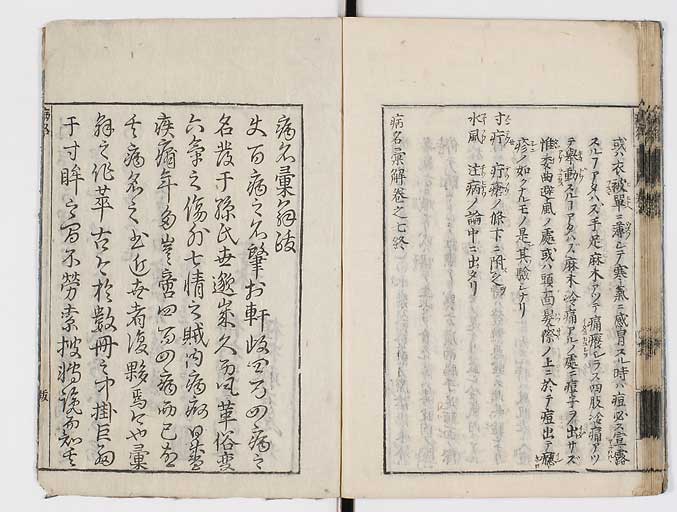 或ハ衣被單ニ薄シテ寒氣ニ感冒スル時ハ痘必ス宣露
スルヿアタハス手足麻木アツテ痛癢シラス四肢冷痛アツ
テ擧動スルヿアタハス麻木冷痛アルノ處ニ痘子ヲ出サス
惟委曲避風ノ處或ハ頭面髮際ノ上ニ於テ痘出テ
疹ノ如クナルモノ是其驗シナリ
寸疔 疔瘡ノ條下ニ附之
水風 注病ノ論中ニ出タリ
病名彙解卷之七終
病名彙解跋
夫百病之名肇於軒岐四百四病之
名發于孫氏世邈歲久而風革俗變
六氣之傷外七情之賊內病
疾痛年多豈啻四百四病而已
病名之書近世者復夥焉也彙
解之作萃古今於數冊之中掛巨細
于寸眸之間不勞索披